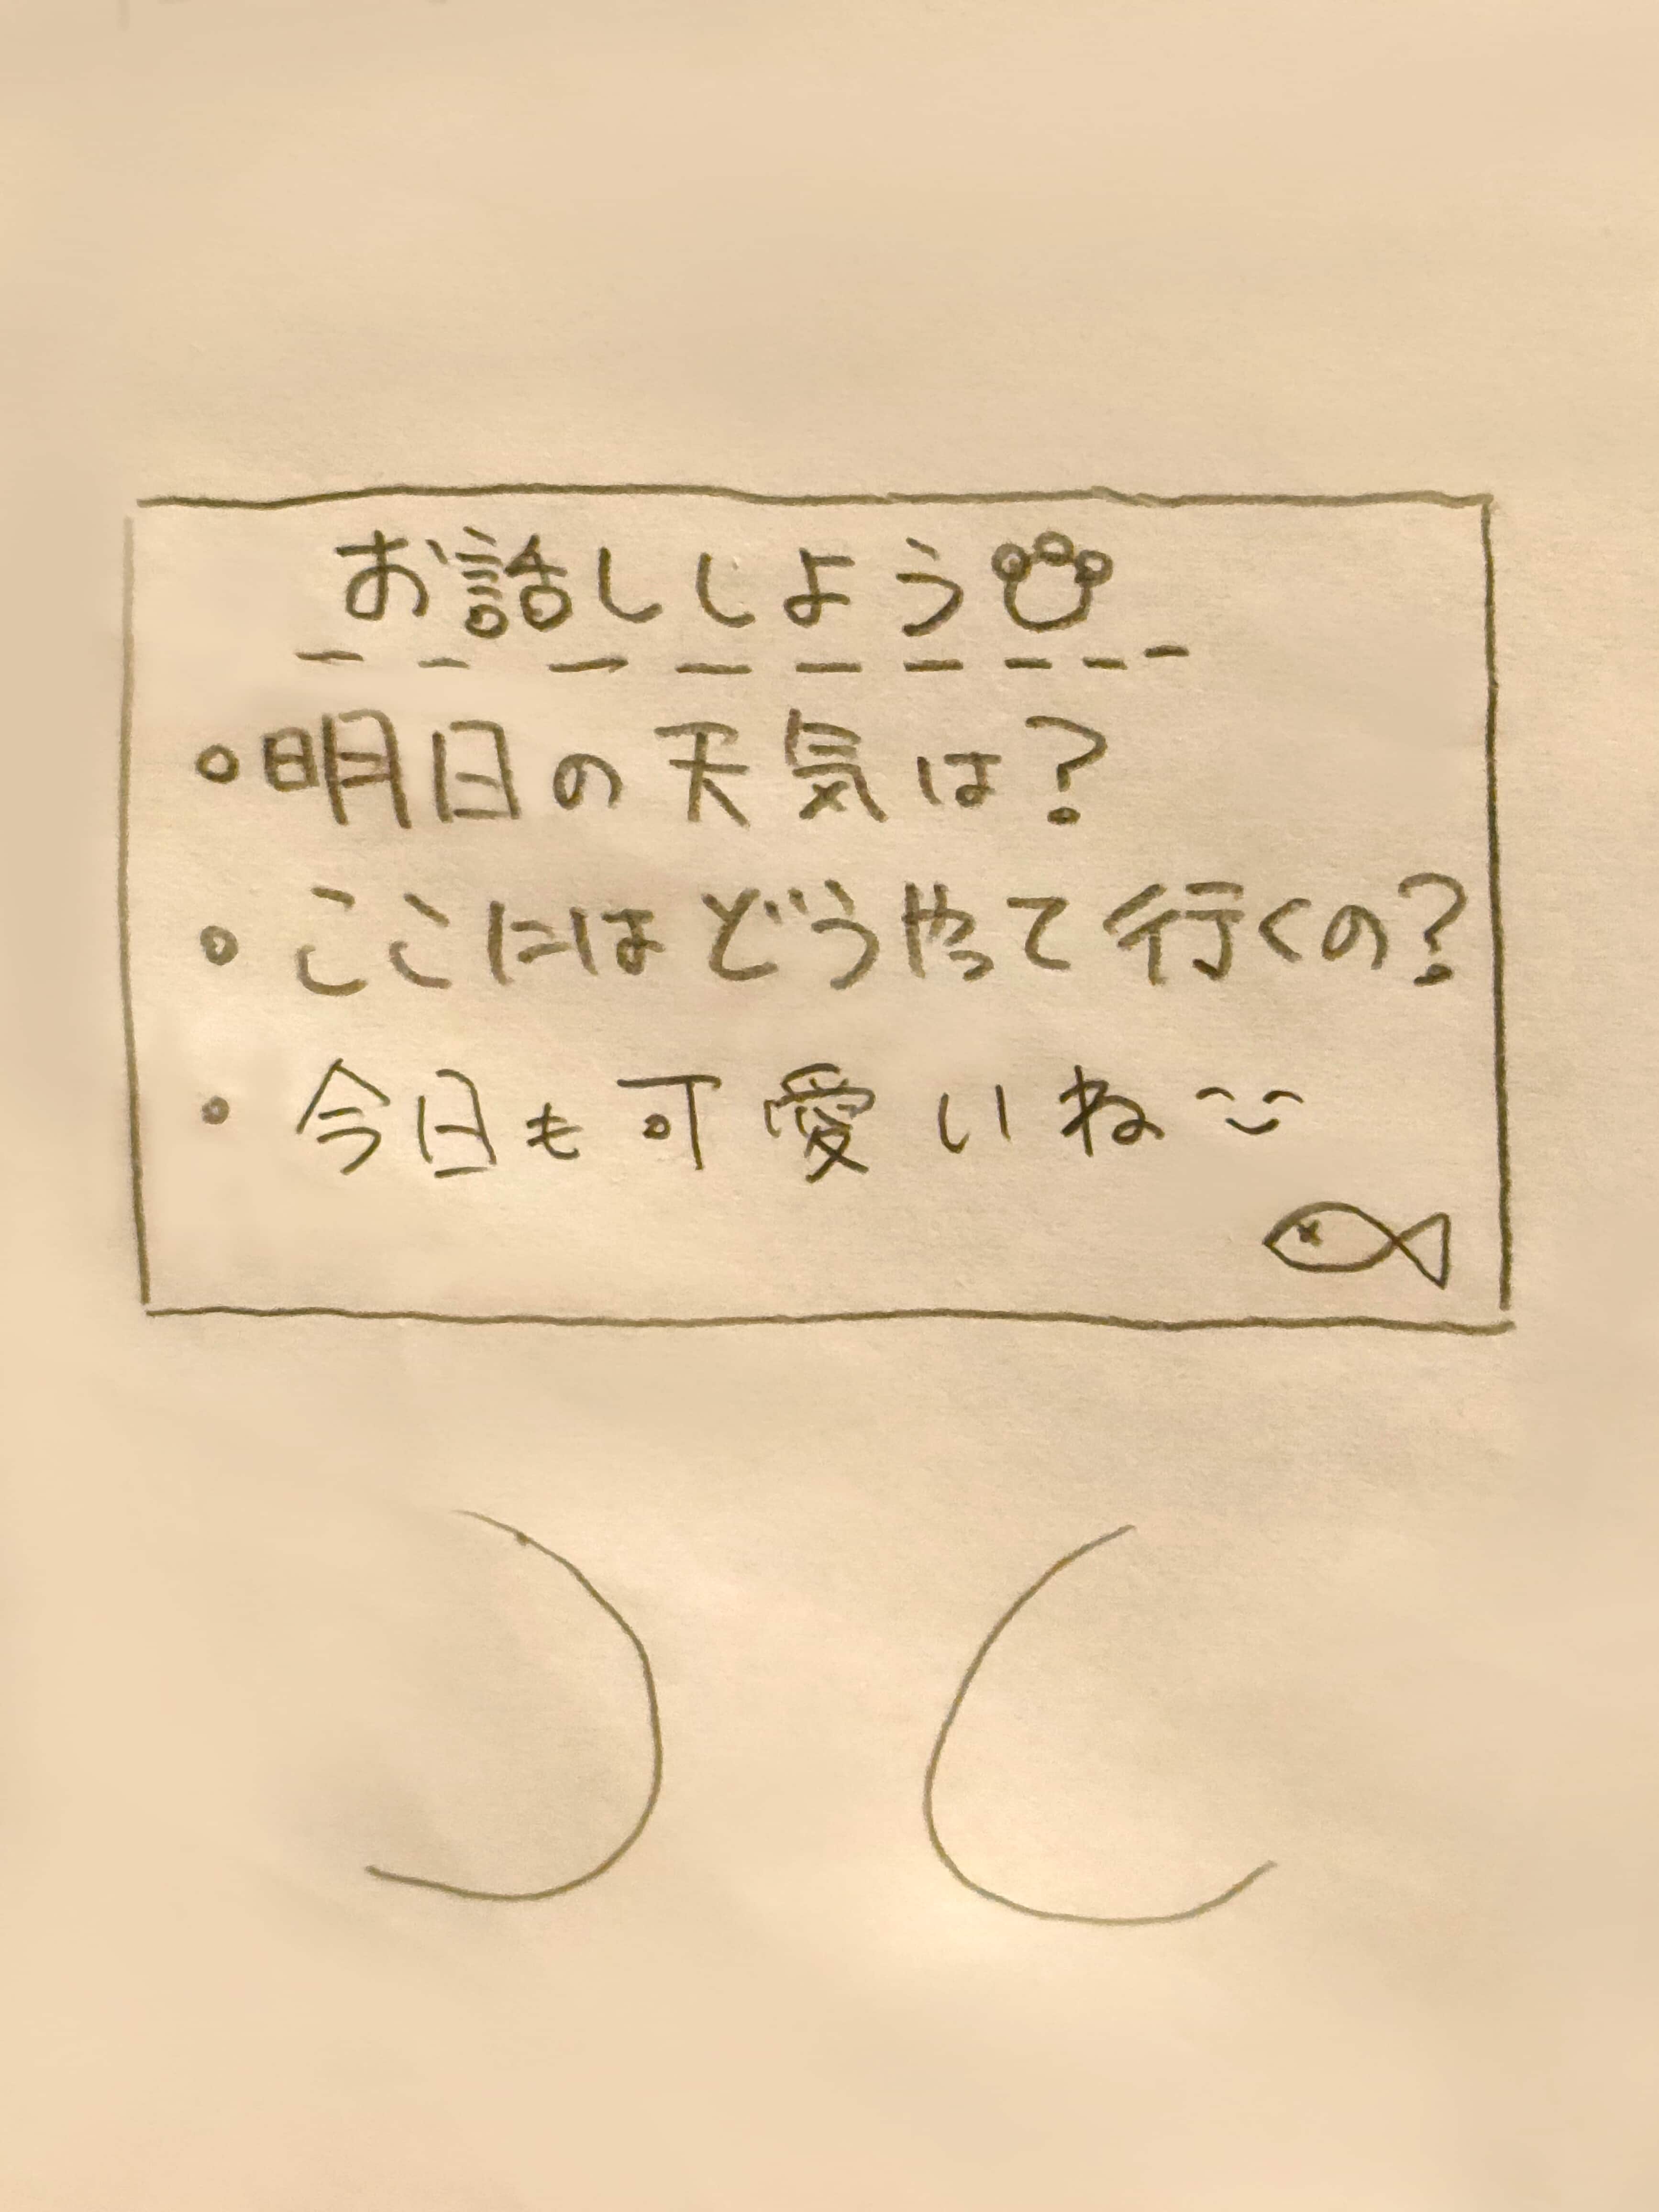 お話ししよう
・明日の天気は?
・ここにはどうやって行くの?
・今日も可愛いね